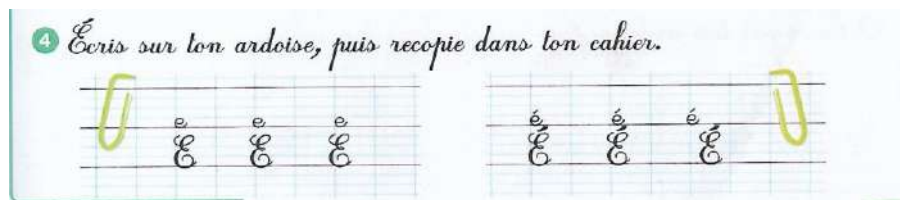 4 Écris sur ton ardoise, puis recopie dans ton cahier.
e e e é é é
E E E É É É